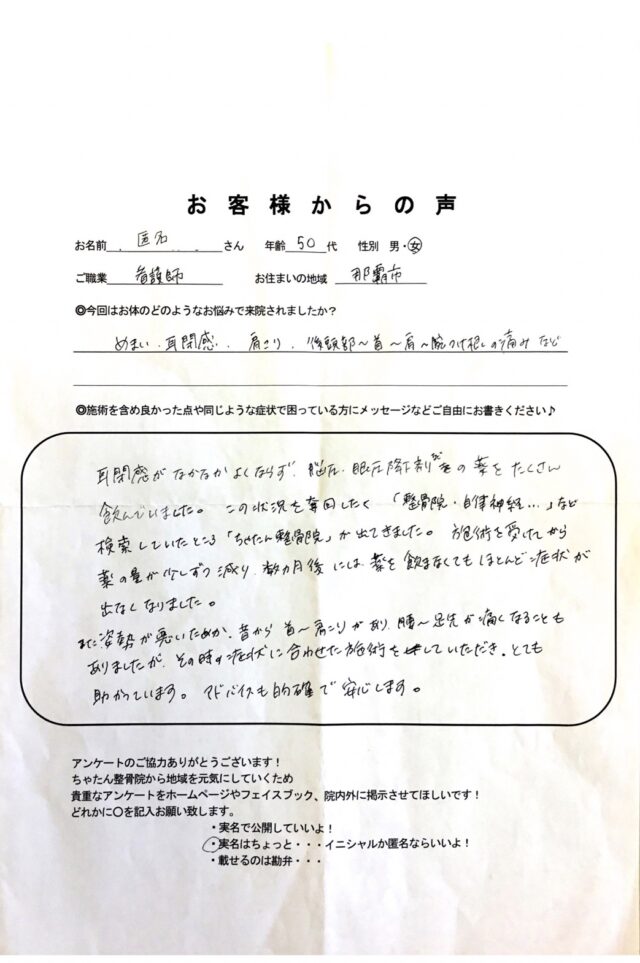 お客様からの声
お名前 匿名 さん 年齢 50 代 性別 男・女
ご職業 看護師 お住まいの地域 那覇市
◎今回はお体のどのようなお悩みで来院されましたか？
めまい、耳閉感、肩こり、後頭部～首～肩～腕つけ根の痛みなど
◎施術を含め良かった点や同じような症状で困っている方にメッセージなどご自由にお書きください♪
耳閉感がなかなかよくならず、脳圧、眼圧降下剤などの薬をたくさん
飲んでいました。この状況を奪回したく「整骨院・自律神経…」など
検索していたところ「ちゃたん整骨院」が出てきました。施術を受けてから
薬の量が少しずつ減り、数カ月後には薬を飲まなくてもほとんど症状が
出なくなりました。
また姿勢が悪いためか、昔から首～肩こりがあり、腰～足先が痛くなることも
ありましたが、その時の症状に合わせた施術をしていただき、とても
助かっています。アドバイスも的確で安心します。
アンケートのご協力ありがとうございます！
ちゃたん整骨院から地域を元気にしていくため
貴重なアンケートをホームページやフェイスブック、院内外に掲示させてほしいです！
どれかに○を記入お願い致します。
・実名で公開していいよ！
・実名はちょっと・・・イニシャルか匿名ならいいよ！
・載せるのは勘弁・・・